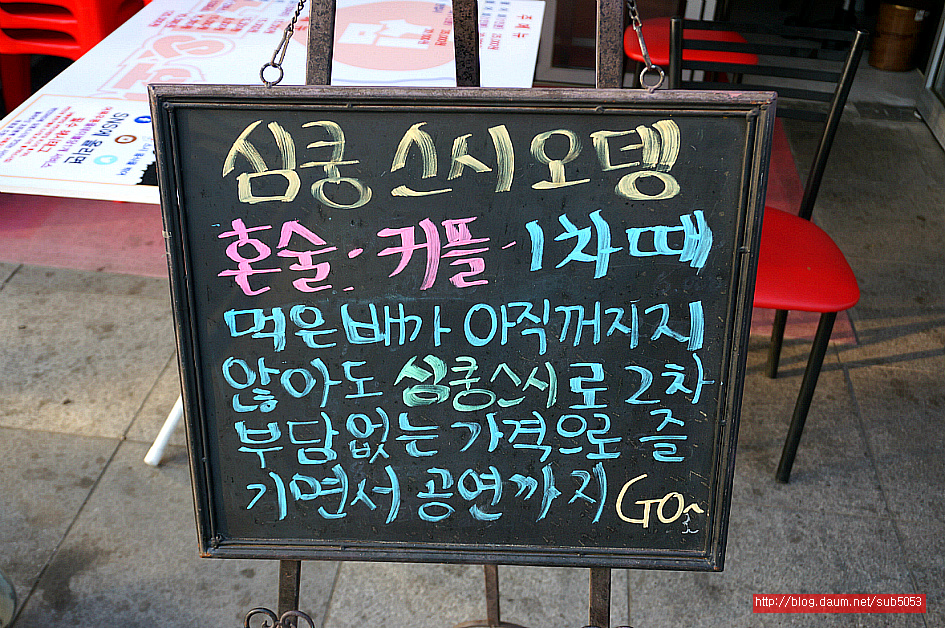 심쿵 스시 오뎅
혼술·커플·1차때
먹은 배가 아직꺼지지
않아도 심쿵스시로 2차
부담없는 가격으로 즐
기면서 공연까지 GO~
http://blog.daum.net/sub5053